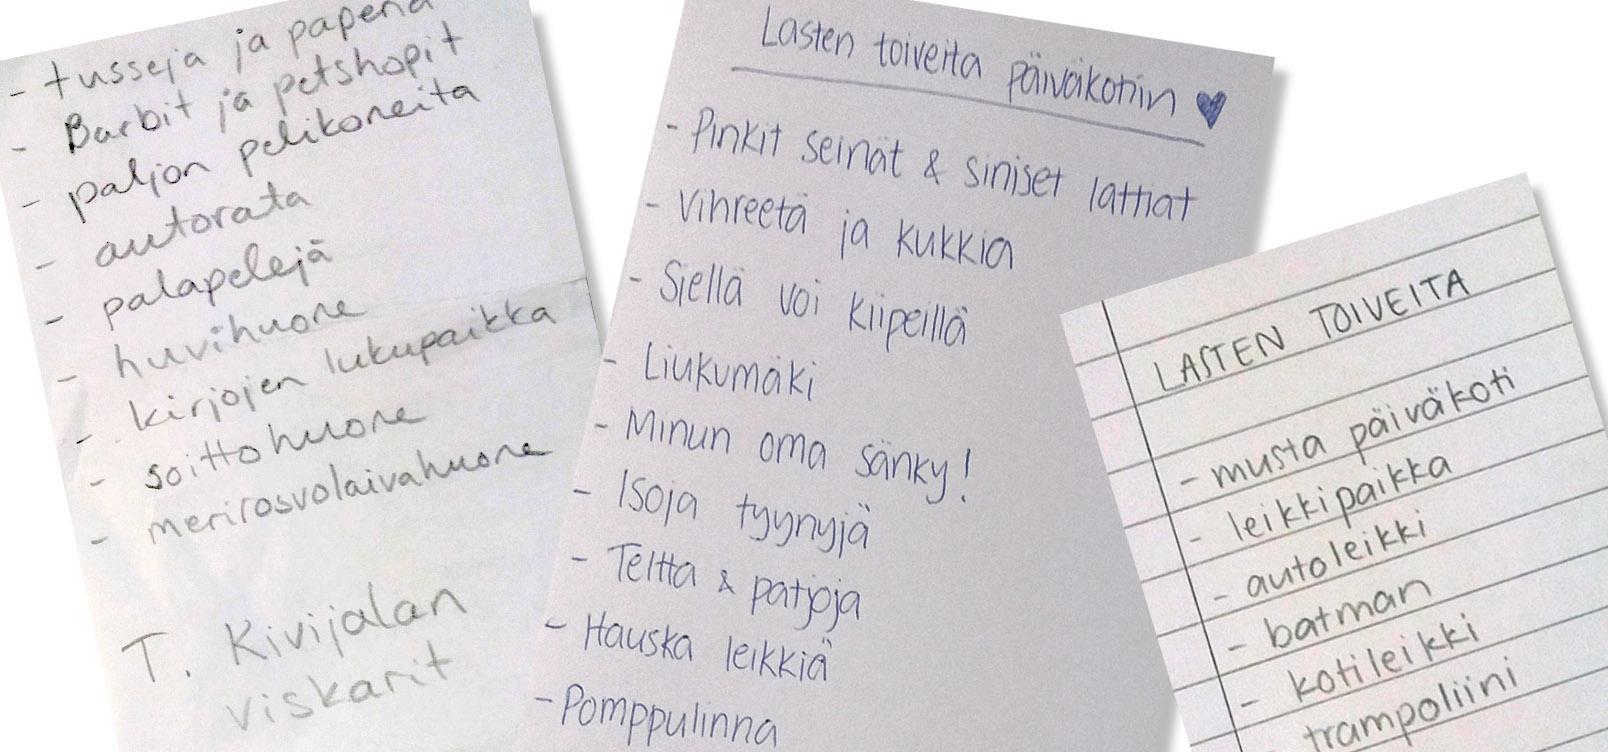 - tusseja ja paperia
- Barbit ja petshopit
- paljon pelikoneita
- autorata
- palapelejä
- huvihuone
- kirjojen lukupaikka
- soittohuone
- merirosvolaivahuone
T. Kivijalan
viskarit
Lasten toiveita päiväkotiin ♥
- Pinkit seinät & siniset lattiat
- Vihreetä ja kukkia
- Siellä voi kiipeillä
- Liukumäki
- Minun oma sänky!
- Isoja tyynyjä
- Teltta & patjoja
- Hauska leikkiä
- Pomppulinna
LASTEN TOIVEITA
- musta päiväkoti
- leikkipaikka
- autoleikki
- batman
- kotileikki
- trampoliini